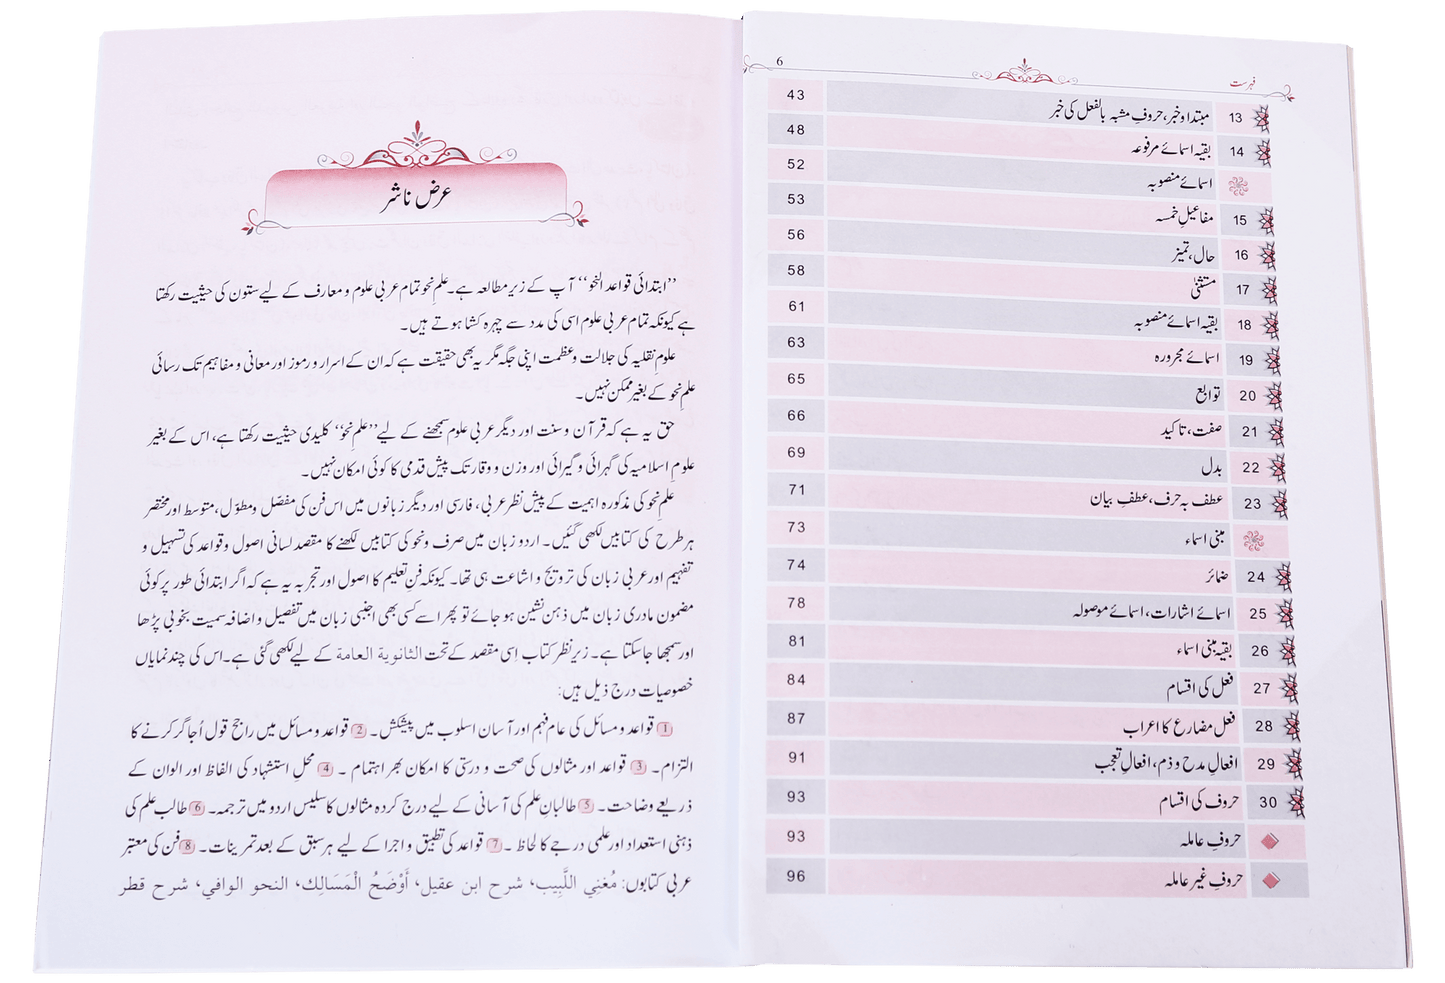 6
فہرست
13 مبتدا و خبر، حروفِ مشبہ بالفعل کی خبر 43
14 بقیہ اسمائے مرفوعہ 48
اسمائے منصوبہ 52
15 مفاعیلِ خمسہ 53
16 حال، تمیز 56
17 مستثنیٰ 58
18 بقیہ اسمائے منصوبہ 61
19 اسمائے مجرورہ 63
20 توابع 65
21 صفت، تاکید 66
22 بدل 69
23 عطف بہ حرف، عطفِ بیان 71
مبنی اسماء 73
24 ضمائر 74
25 اسمائے اشارات، اسمائے موصولہ 78
26 بقیہ مبنی اسماء 81
27 فعل کی اقسام 84
28 فعل مضارع کا اعراب 87
29 افعالِ مدح و ذم، افعالِ تعجب 91
30 حروف کی اقسام 93
حروفِ عاملہ 93
حروفِ غیر عاملہ 96
عرض ناشر
’’ابتدائی قواعد النحو‘‘ آپ کے زیر مطالعہ ہے۔ علمِ نحو تمام عربی علوم و معارف کے لیے ستون کی حیثیت رکھتا
ہے کیونکہ تمام عربی علوم اسی کی مدد سے چہرہ کشا ہوتے ہیں۔
علومِ نقلیہ کی جلالت و عظمت اپنی جگہ مگر یہ بھی حقیقت ہے کہ ان کے اسرار و رموز اور معانی و مفاہیم تک رسائی
علمِ نحو کے بغیر ممکن نہیں۔
حق یہ ہے کہ قرآن و سنت اور دیگر عربی علوم سمجھنے کے لیے ’’علمِ نحو‘‘ کلیدی حیثیت رکھتا ہے، اس کے بغیر
علومِ اسلامیہ کی گہرائی و گیرائی اور وزن و وقار تک پیش قدمی کا کوئی امکان نہیں۔
علمِ نحو کی مذکورہ اہمیت کے پیش نظر عربی، فارسی اور دیگر زبانوں میں اس فن کی مفصّل و مطوّل، متوسط اور مختصر
ہر طرح کی کتابیں لکھی گئیں۔ اردو زبان میں صرف و نحو کی کتابیں لکھنے کا مقصد لسانی اصول و قواعد کی تسہیل و
تفہیم اور عربی زبان کی ترویج و اشاعت ہی تھا۔ کیونکہ فنِ تعلیم کا اصول اور تجربہ یہ ہے کہ اگر ابتدائی طور پر کوئی
مضمون مادری زبان میں ذہن نشین ہو جائے تو پھر اسے کسی بھی اجنبی زبان میں تفصیل و اضافہ سمیت بخوبی پڑھا
اور سمجھا جا سکتا ہے۔ زیر نظر کتاب اِسی مقصد کے تحت الثانوية العامة کے لیے لکھی گئی ہے۔ اس کی چند نمایاں
خصوصیات درج ذیل ہیں:
1 قواعد و مسائل کی عام فہم اور آسان اسلوب میں پیشکش۔ 2 قواعد و مسائل میں راجح قول اُجاگر کرنے کا
التزام۔ 3 قواعد اور مثالوں کی صحت و درستی کا امکان بھر اہتمام ۔ 4 محلِ استشہاد کی الفاظ اور الوان کے
ذریعے وضاحت۔ 5 طالبانِ علم کی آسانی کے لیے درج کردہ مثالوں کا سلیس اردو میں ترجمہ۔ 6 طالب علم کی
ذہنی استعداد اور علمی درجے کا لحاظ ۔ 7 قواعد کی تطبیق و اجرا کے لیے ہر سبق کے بعد تمرینات۔ 8 فن کی معتبر
عربی کتابوں: مُغنِي اللَّبِيب، شرح ابن عقيل، أَوْضَحُ الْمَسَالِك، النحو الوافي، شرح قطر